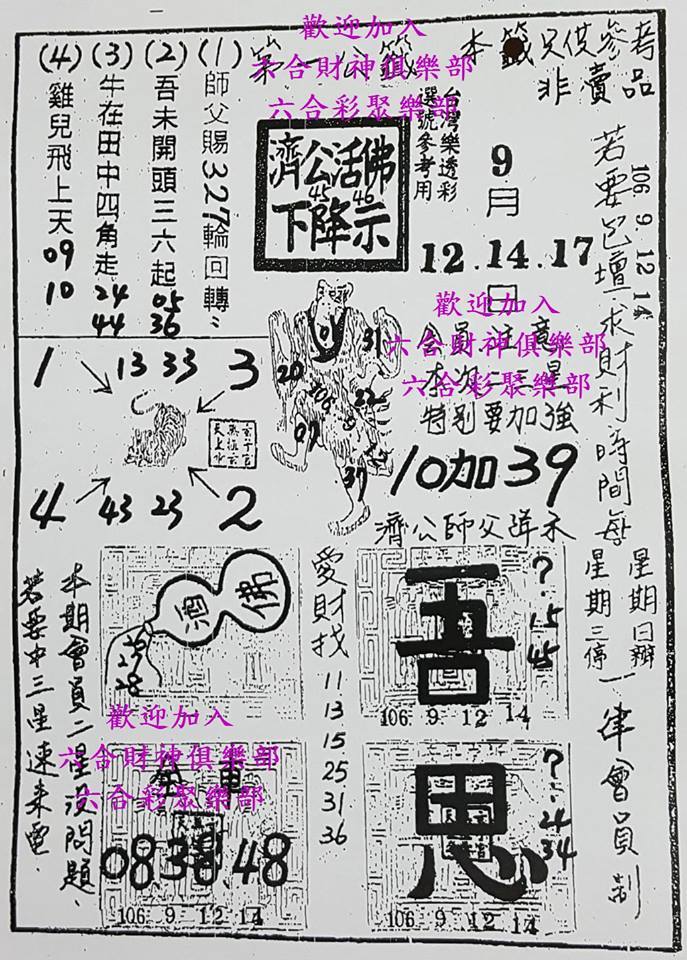 第一公籤
本籤只供參考
非賣品
歡迎加入
六合財神俱樂部
六合彩聚樂部
(1)師父賜327輪回轉
(2)吾未開頭三六起 05 36
(3)牛在田中四角走 24 44
(4)雞兒飛上天 09 10
濟公活佛
45 46
下降示
台灣樂透彩
選號參考用
9月
12.14.17
日
106.9.12 14
歡迎加入
六合財神俱樂部
六合彩聚樂部
會員注意
本次二三星
特別要加強
10加39
濟公師父降示
若要包增求財利時間每
星期日辦
星期三停
一律會員制
1 13 33 3
4 43 23 2
31
20
22
07
37
愛財找
11
13
15
25
31
36
佛
酒
28
吾
?
15
45
106 9 12 14
思
?
24
34
106 9 12 14
歡迎加入
六合財神俱樂部
六合彩聚樂部
08 38 48
106 9 12 14
本期會員二星沒問題
若要中三星速來電